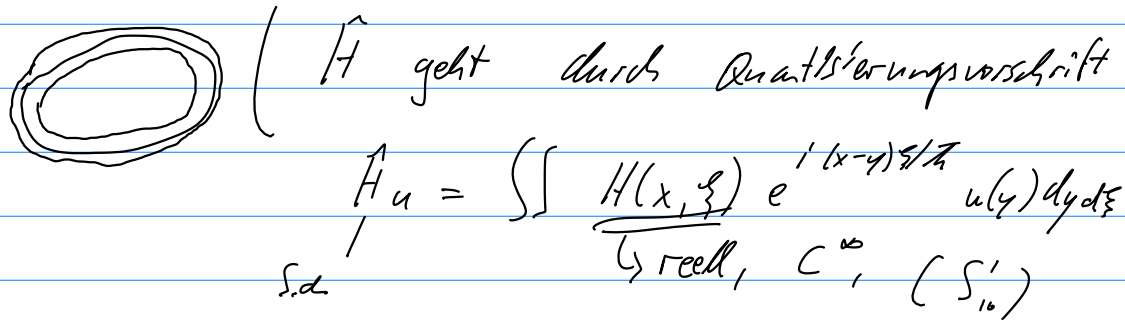 ( Ĥ geht durch Quantisierungsvorschrift
Ĥu = ∬ H(x,ξ) e^{i(x-y)ξ/ħ} u(y)dydξ
s.a. ↳ reell, C^∞, (S^1_{10})